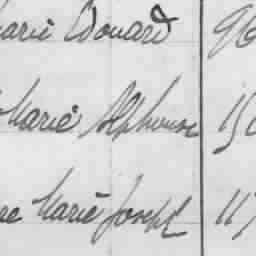 Marie Edouard 96
Marie Alphonse 150
Marie Joseph 117